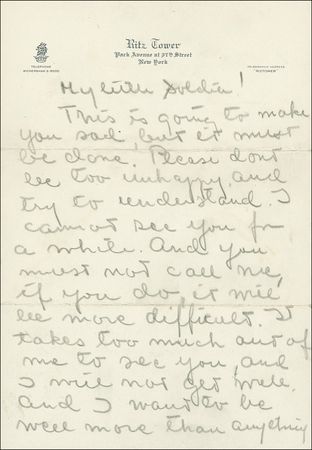 Ritz Tower
Park Avenue at 57th Street
New York
TELEPHONE
WICKERSHAM 2-5000
TELEGRAPHIC ADDRESS
"RITZOWER"
My little Soldier!
This is going to make
you sad, but it must
be done. Please dont
be too unhappy and
try to understand. I
cannot see you for
a while. And you
must not call me,
if you do, it will
be more difficult. It
takes too much out of
me to see you, and
I will not get well.
And I want to be
well more than anything